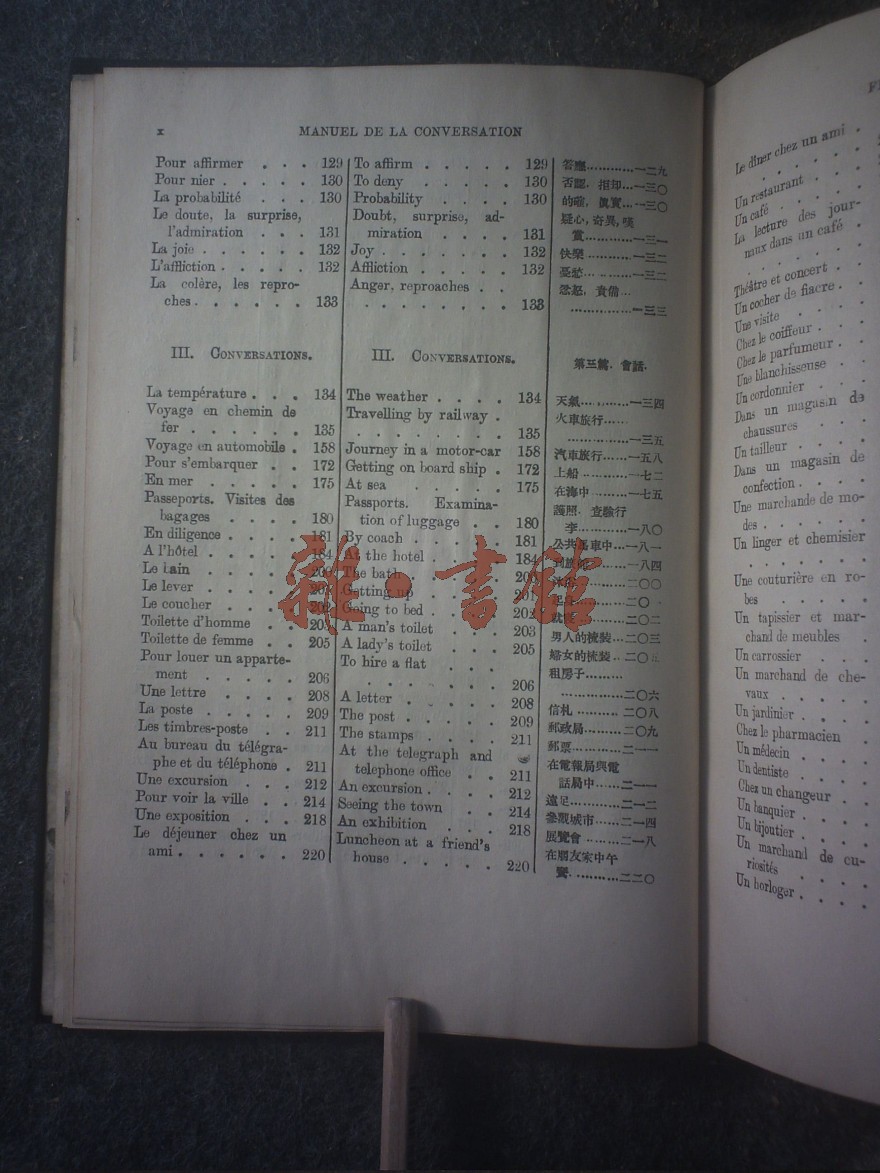 x
MANUEL DE LA CONVERSATION
Pour affirmer . . . 129
Pour nier . . . . . 130
La probabilité . . . 130
Le doute, la surprise,
l'admiration . . . 131
La joie . . . . . . 132
L'affliction . . . . . 132
La colère, les repro-
ches . . . . . . 133
III. CONVERSATIONS.
La température . . . 134
Voyage en chemin de
fer . . . . . . 135
Voyage en automobile . 158
Pour s'embarquer . . 172
En mer . . . . . 175
Passeports. Visites des
bagages . . . . 180
En diligence . . . . 181
A l'hôtel . . . . . 184
Le bain . . . . .
Le lever . . . .
Le coucher . . . . 202
Toilette d'homme . . 203
Toilette de femme . . 205
Pour louer un apparte-
ment . . . . . 206
Une lettre . . . . 208
La poste . . . . . 209
Les timbres-poste . . 211
Au bureau du télégra-
phe et du téléphone . 211
Une excursion . . . 212
Pour voir la ville . . 214
Une exposition . . . 218
Le déjeuner chez un
ami . . . . . . 220
To affirm . . . . . 129
To deny . . . . . 130
Probability . . . . 130
Doubt, surprise, ad-
miration . . . . 131
Joy . . . . . . . 132
Affliction . . . . . 132
Anger, reproaches . .
. . . . . . . 133
III. CONVERSATIONS.
The weather . . . . 134
Travelling by railway .
. . . . . . . 135
Journey in a motor-car 158
Getting on board ship . 172
At sea . . . . . 175
Passports. Examina-
tion of luggage . . 180
By coach . . . . . 181
At the hotel . . . . 184
The bath
Getting up . . . . 201
Going to bed . . . . 202
A man's toilet . . . 203
A lady's toilet . . . 205
To hire a flat . . .
. . . . . . . 206
A letter . . . . . 208
The post . . . . . 209
The stamps . . . . 211
At the telegraph and
telephone office . . 211
An excursion . . . . 212
Seeing the town . . 214
An exhibition . . . 218
Luncheon at a friend's
house . . . . . 220
答應............一二九
否認,拒却...一三〇
的確,眞實...一三〇
疑心,奇異,嘆
賞............一三一
快樂............一三二
憂愁............一三二
忿怒,責備...
...............一三三
第三篇.會話.
天氣............一三四
火車旅行......
...............一三五
汽車旅行......一五八
上船............一七二
在海中.........一七五
護照.查驗行
李...............一八〇
公共馬車中...一八一
一八四
二〇〇
二〇二
男人的梳裝...二〇三
婦女的梳裝...二〇五
租房子.........
...............二〇六
信札............二〇八
郵政局.........二〇九
郵票............二一一
在電報局與電
話局中......二一一
遠足............二一二
參觀城市......二一四
展覽會.........二一八
在朋友家中午
餐............二二〇
雜·書館
Le dîner chez un ami .
Un restaurant . . .
Un café . . . . .
La lecture des jour-
naux dans un café .
Théâtre et concert . .
Un cocher de fiacre . .
Une visite . . . .
Chez le coiffeur . . .
Chez le parfumeur . .
Une blanchisseuse . .
Un cordonnier . . .
Dans un magasin de
chaussures . . . .
Un tailleur . . . .
Dans un magasin de
confection . . . .
Une marchande de mo-
des . . . . . .
Un linger et chemisier
Une couturière en ro-
bes . . . . .
Un tapissier et mar-
chand de meubles .
Un carrossier . . .
Un marchand de che-
vaux . . . . .
Un jardinier . . . .
Chez le pharmacien .
Un médecin . . . .
Un dentiste . . . .
Chez un changeur . .
Un banquier . . . .
Un bijoutier . . . .
Un marchand de cu-
riosités . . . .
Un horloger . . . .